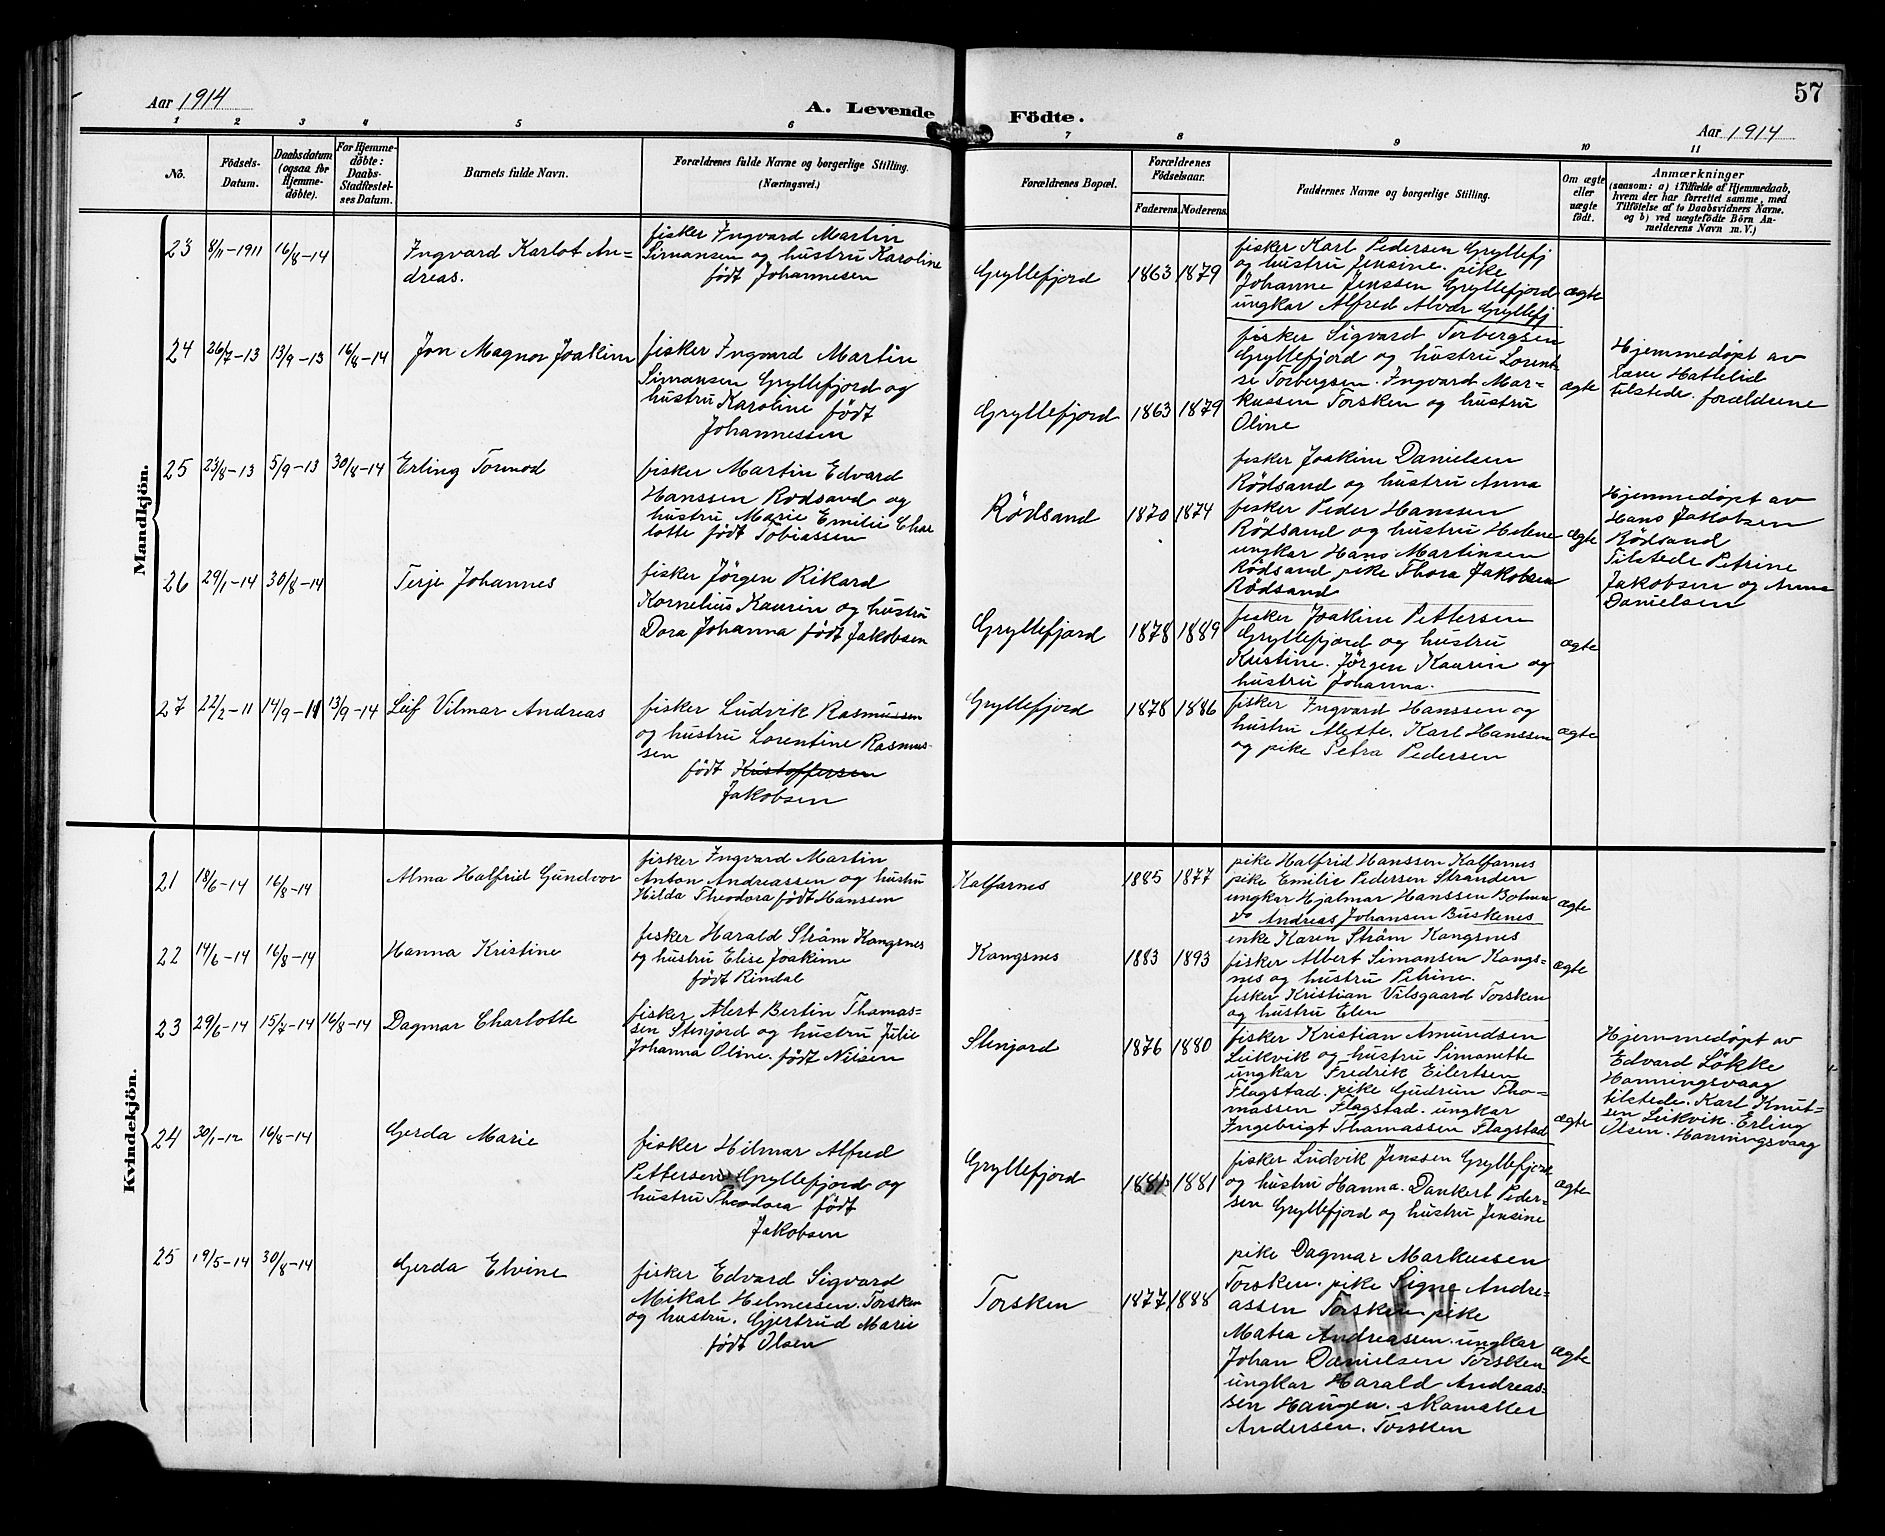 Aar 1914
A. Levende
1 2 3 4 5 6
No.
Födsels-
Datum.
Daabsdatum
(ogsaa for
Hjemme-
döbte).
For Hjemme-
döbte:
Daabs-
Stadfæstel-
ses Datum.
Barnets fulde Navn.
Forældrenes fulde Navne og borgerlige Stilling.
(Næringsvei.)
Mandkjön.
23 8/11-1911 16/8-14
Ingvard Karlot An=
dreas.
fisker Ingvard Martin
Simansen og hustru Karoline
født Johannesen
24 26/7-13 13/9-13 16/8-14 Jon Magnor Joakim
fisker Ingvard Martin
Simansen Gryllefjord og
hustru Karoline født
Johannessen
25 23/8-13 5/9-13 30/8-14 Erling Tormod
fisker Martin Edvard
Hanssen Rødsand og
hustru Marie Emilie Char
lotte født Tobiassen
26 29/1-14 30/8-14 Terje Johannes
fisker Jörgen Rikard
Kornelius Kaurin og hustru
Dora Johanna født Jakobsen
27 22/2-11 14/9-11 13/9-14 Leif Vilmar Andreas
fisker Ludvik Rasmussen
og hustru Lorentine Rasmus-
sen
født Kristoffersen
Jakobsen
Kvindekjön.
21 18/6-14 16/8-14 Alma Halfrid Gundvor
fisker Ingvard Martin
Anton Andreassen og hustru
Hilda Theodora født Hanssen
22 14/6-14 16/8-14 Hanna Kristine
fisker Harald Ström Kongsnes
og hustru Elise Joakime
født Rindal
23 29/6-14 15/7-14 16/8-14 Dagmar Charlotte
fisker Alert Bertin Thomas-
sen Stenjord og hustru Julie
Johanna Oline. født Nilsen
24 30/1-12 16/8-14 Gerda Marie
fisker Hilmar Alfred
Pettersen Gryllefjord og
hustru Theodora født
Jakobsen
25 19/5-14 30/8-14 Gerda Elvine
fisker Edvard Sigvard
Mikal Helmersen. Torsken
og hustru. Gjertrud Marie
født Olsen
57
Födte.
Aar 1914
7 8 9 10 11
Forældrenes Bopæl.
Forældrenes
Födselsaar.
Faderens. Moderens.
Faddernes Navne og borgerlige Stilling.
Om ægte
eller
uægte
födt.
Anmærkninger
(saasom: a) i Tilfælde af Hjemmedaab,
hvem der har forrettet samme, med
Tilföielse af to Daabsvidners Navne.
og b) ved uægtefödte Börn An-
melderens Navn m. V.)
Gryllefjord 1863 1879
fisker Karl Pedersen Gryllefj
og hustru Jensine. pike
Johanne Jenssen Gryllefjord
ungkar Alfred Alvær Gryllefj
ægte
Gryllefjord 1863 1879
fisker Sigvard Torbergsen
Gryllefjord og hustru Lorent-
se Torbergsen. Ingvard Mar-
kussen Torsken og hustru
Oline
ægte
Hjemmedøpt av
Hattelid
tilstede. forældrene
Rödsand 1870 1874
fisker Joakim Danielsen
Rödsand og hustru Anna
fisker Peder Hanssen
Rödsand og hustru Helene
ungkar Hans Martinsen
Rödsand pike Thora Jakobsen
Rödsand
ægte
Hjemmedøpt av
Hans Jakobsen
Rödsand
Tilstede Petrine
Jakobsen og Anna
Danielsen
Gryllefjord 1878 1889
fisker Joakim Pettersen
Gryllefjord og hustru
Kristine. Jörgen Kaurin og
hustru Johanna.
ægte
Gryllefjord 1878 1886
fisker Ingvard Hanssen og
hustru Aleste. Karl Hanssen
og pike Petra Pedersen
ægte
Kalfarnes 1885 1877
pike Halfrid Hanssen Kalfarnes
pike Emilie Pedersen Stranden
ungkar Hjalmar Hanssen Botnen
do Andreas Johansen Buskenes
ægte
Kongsnes 1883 1893
enke Karen Ström Kongsnes
fisker Albert Simonsen Kongs-
nes og hustru Petrine.
fisker Kristian Vilsgaard Torsken
og hustru Elen
ægte
Stenjord 1876 1880
fisker Kristian Amundsen
Leikvik og hustru Simanette
ungkar Fredrik Eilertsen
Flagstad. pike Gudrun Tho-
massen Flagstad. ungkar
Ingebrigt Thomassen Flagstad
ægte
Hjemmedøpt av
Edvard Lökke
Honningsvaag
tilstede. Karl Knut-
sen Leikvik. Erling
Olsen. Honningsvaag
Gryllefjord 1881 1881
fisker Ludvik Jenssen Gryllefjord
og hustru Hanna. Dankert Peder-
sen Gryllefjord og hustru Jensine
ægte
Torsken 1877 1888
pike Dagmar Markussen
Torsken. pike Signe Andre-
assen Torsken. pike
Matea Andreassen. ungkar
Johan Danielsen Torsken
ungkar Harald Andreas-
sen Haugen. skomaker
Andersen. Torsken
ægte